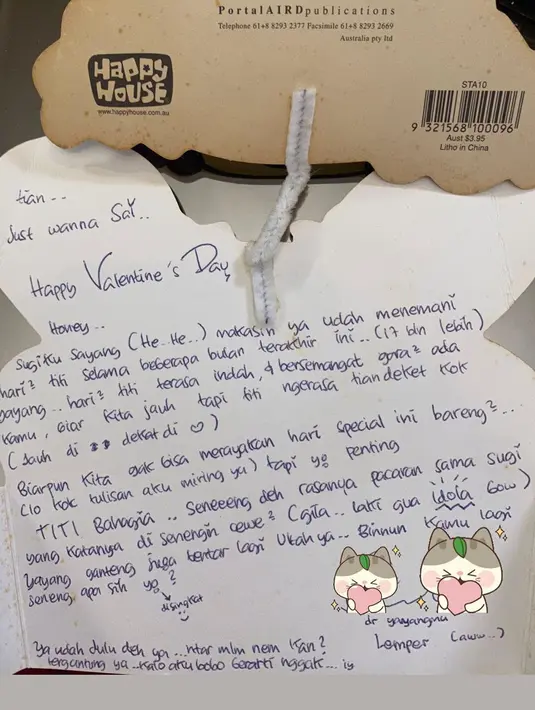 PortalAIRDpublications
Telephone 61+8 8293 2377 Facsimile 61+8 8293 2669
Australia pty ltd
HAPPY HOUSE
www.happyhouse.com.au
STA10
9 321568 100096
Aust $3.95
Litho in China
tian - -
Just wanna Say..
Happy Valentine's Day
Honey..
Sugiku Sayang (He..He..) makasih ya udah menemani
hari² titi selama beberapa bulan terakhir ini.. (17 bln lebih)
yayang.. hari² titi terasa indah, & bersemangat gara² ada
kamu, biar kita jauh tapi titi ngerasa tian deket kok
(Jauh di dekat di ♡)
Biarpun kita gak bisa merayakan hari special ini bareng²...
(lo kok tulisan aku miring ya) tapi yg penting
TITI Bahagia.. Seneeeng deh rasanya pacaran sama sugi
yang katanya di senengin cewe² (gila.. laki gua idola bow)
yayang ganteng juga bentar lagi Ultah ya.. Binnun kamu lagi
seneng apa sih yg?
disingkat
dr yayangmu
Lemper (aww..)
Ya udah dulu deh ya ...ntar mlm nem kan?
tergantung ya..kalo aku bobo berarti nggak...